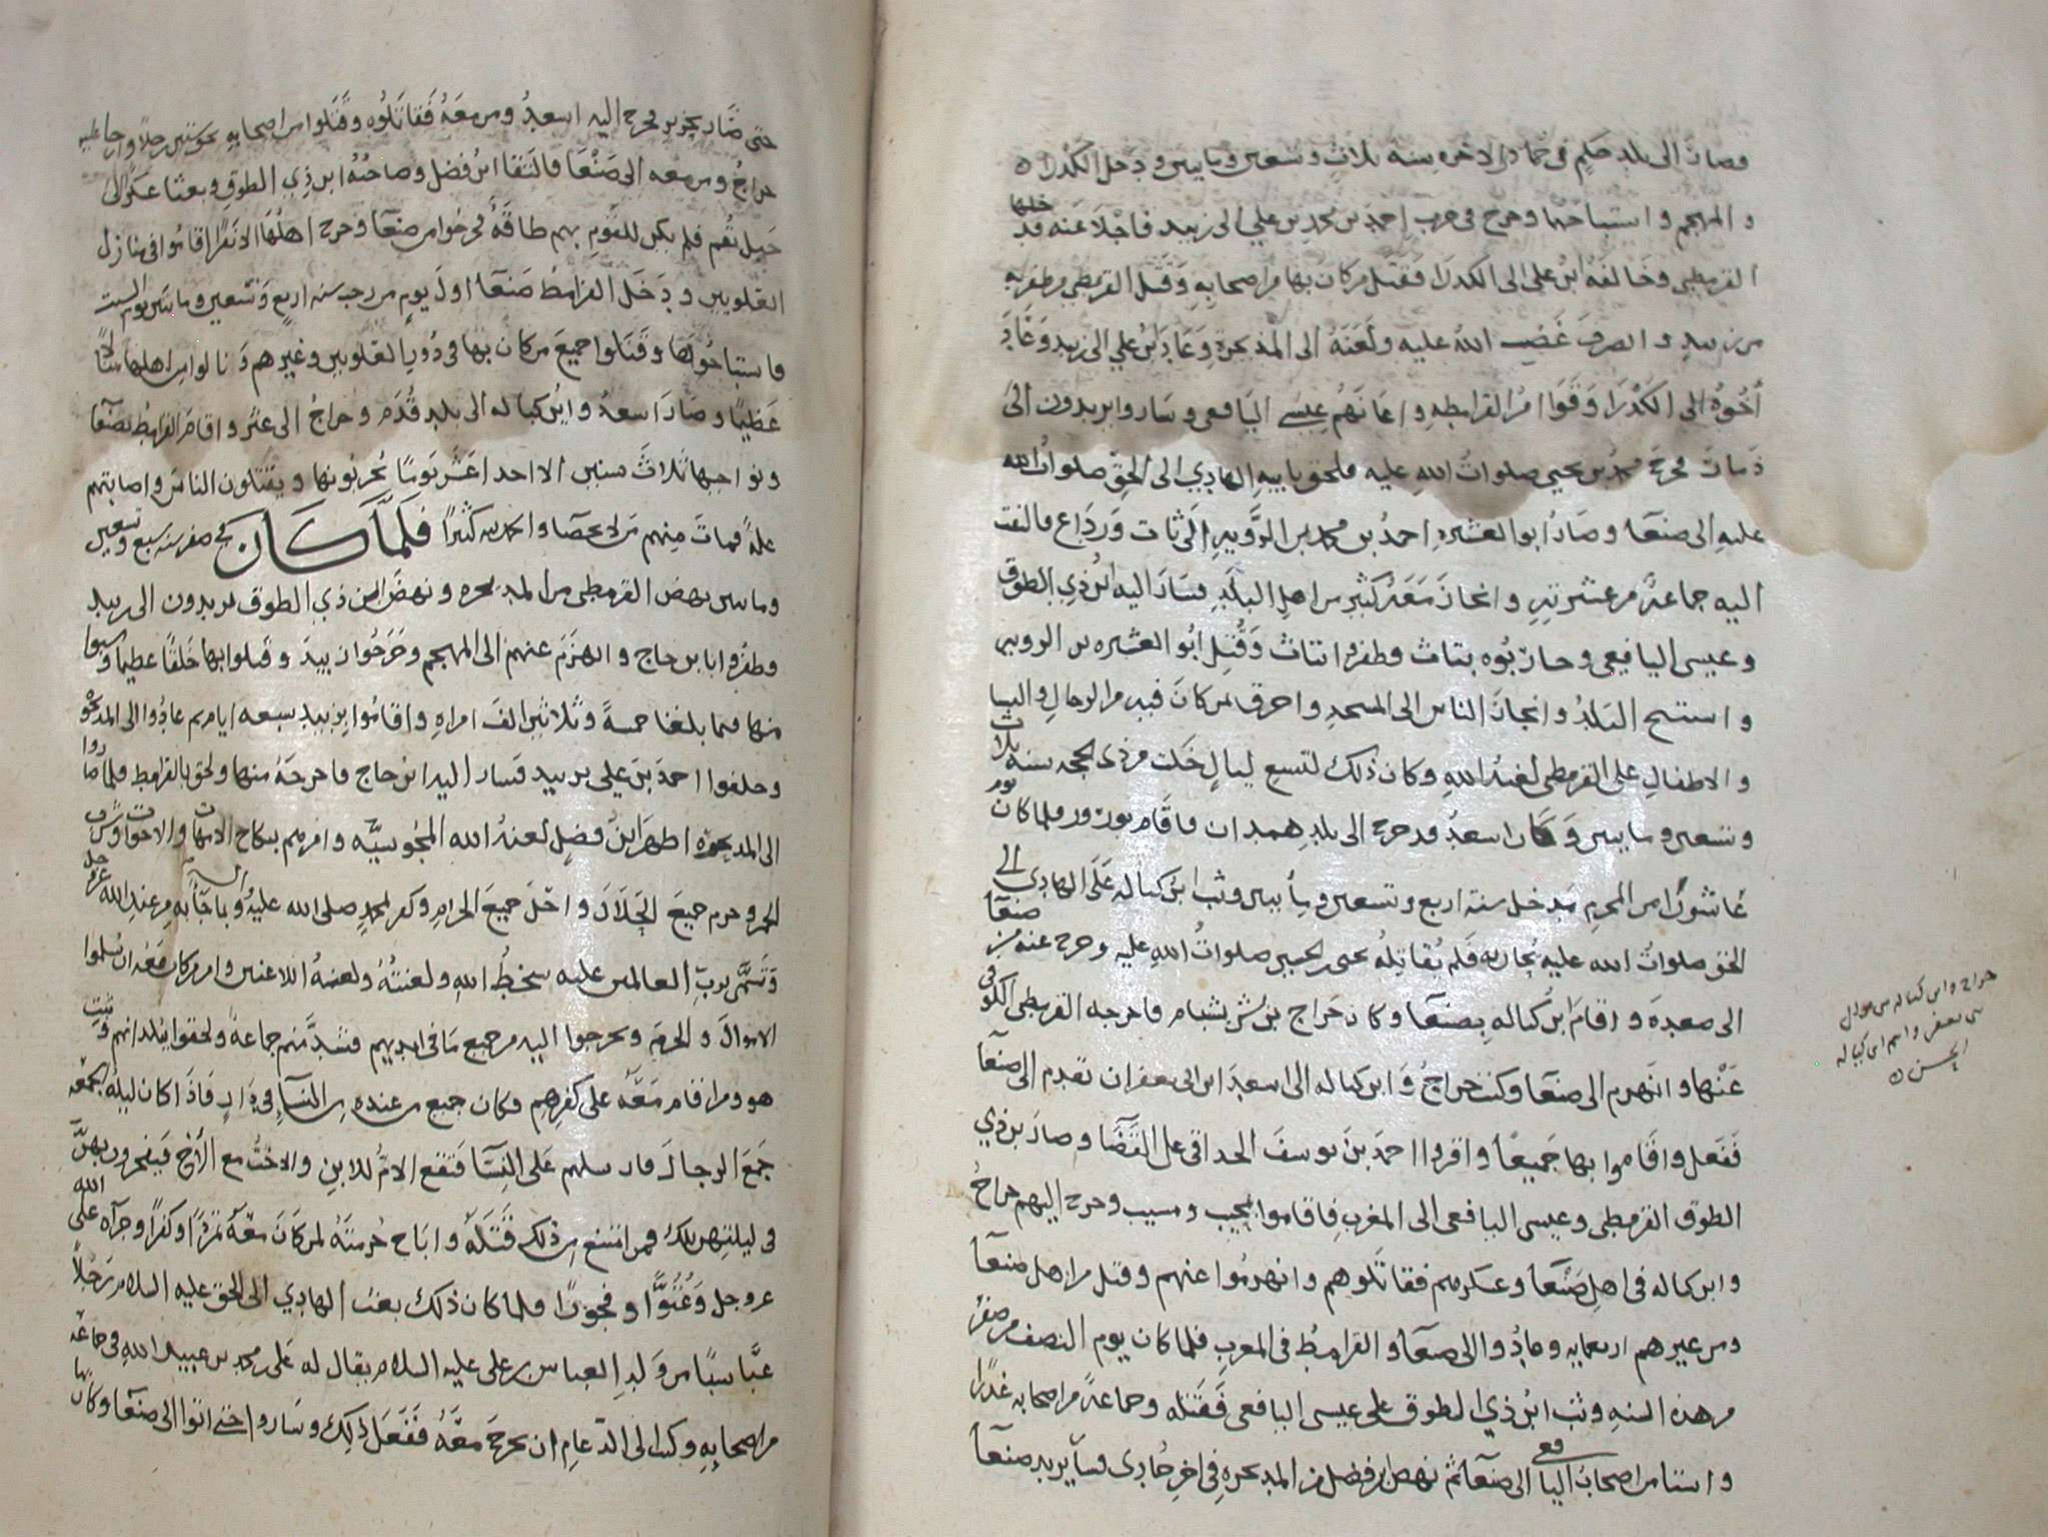 وصار الى بلد حكم في جمادى الاخره سنه ثلاث وتسعين ومايتين ودخل الكدرا
والمهجم واستباحهما وخرج في حرب احمد بن محمد بن علي الى زبيد فاجلا عنه قد خلها
القرمطي وخالفه ابن علي الى الكدرا فقتل من كان بها من اصحابه وقتل القرمطي من ظفر به
من زبيد وانصرف غضب الله عليه ولعنه الى المذيخره وعاد بن علي الى زبيد وعاد
أخوه الى الكدرا وقوا امر القرامطه واعانهم عيسى اليافعي وساروا يريدون الى
ذمار فخرج محمد بن يحيى صلوات الله عليه فلحق بابيه الهادي الى الحق صلوات الله
عليه الى صنعا وصار ابو العشيره احمد بن محمد بن الرويه الى ثات ورداع فالتفت
اليه جماعة من عشيرته وانحاز معه كثير من اهل البلد فسار اليه ابن ذي الطوق
وعيسى اليافعي وحاربوه بثات وظفروا بثاث وقتل ابو العشيره بن الرويه
واستبيح البلد وانحاز الناس الى المسجد واحرق لمن كان فيه من الرجال والنسا
والاطفال على القرمطي لعنة الله وكان ذلك لتسع ليال خلت من ذي الحجه سنه ثلاث
وتسعين ومايتين وكان اسعد قد خرج الى بلد همدان فاقام بورور فلما كان يوم
عاشورا من المحرم مدخل سنة اربع وتسعين ومأيتين وثب ابن كباله على الهادي الى
الحق صلوات الله عليه يحاربه فلم يقاتله يحيى بن الحسين صلوات الله عليه وخرج عنه من صنعا
الى صعدة واقام ابن كباله بصنعا وكان حراج بن بشر بشبام فاخرجه القرمطي الكوفي
عنها وانهزم الى صنعا وكتب حراج وابن كباله الى اسعد ابن ابي يعفر ان تقدم الى صنعا
ففعل واقاموا بها جميعا واقروا احمد بن يوسف الحداقي على القضا وصار بن ذي
الطوق القرمطي وعيسى اليافعي الى المغرب فاقاموا ومسيب وخرج اليهم حراج
وابن كباله في اهل صنعا وعسكرهم فقاتلوهم وانهزموا عنهم وقتل من اهل صنعا
ومن غيرهم اربعمايه وعادوا الى صنعا والقرامط في المغرب فلما كان يوم النصف من صفر
من هذه السنه وثب ابن ذي الطوق على عيسى اليافعي فقتله وجماعة من اصحابه غدرا
واستامن اصحاب اليافعي الى صنعا ثم نهض ابن فضل من المذيخره في اخر جمادى فسأ يريد صنعا
حراج وابن كباله من موالي
بني يعفر واسم ابن كباله
الحسن
حتى صار فخرج اليه اسعد ومن معه فقاتلوه وقتلوا من اصحابه نحو ستين رجلا وارجا عليه
حراج ومن معه الى صنعا فالتقا ابن فضل وصاحبه ابن ذي الطوق وبعثا عسكرا الى
جبل نقم فلم يكن للقوم بهم طاقة فخرجوا من صنعا وخرج اهلها الا نفرا اقاموا في منازل
العلويين ودخل القرامط صنعا اول يوم من رجب سنه اربع وتسعين ومايتين يوم السبت
فاستباحوها وقتلوا جميع من كان بها في دور العلويين وغيرهم ونالوا من اهلها منالا
عظيما وصار اسعد وابن كباله الى بلد قدم وحراج الى عثر واقام القرامط بصنعا
ونواحيها ثلاث سنين الا احد عشر يوما يخربونها ويقتلون الناس واصابتهم
علة فمات منهم من لا يحصا والحمد لله كثيرا فلما كان في صفر سنه سبع وتسعين
ومايتين نهض القرمطي من المذيخره ونهض ابن ذي الطوق يريدون الى زبيد
وظفروا بابن حاج وانهزم عنهم الى المهجم وخرجوا زبيد وقتلوا بها خلقا عظيما وسبوا
منها فيما بلغنا خمسة وثلاثين الف امراه واقاموا بزبيد سبعه ايام ثم عادوا الى المذيخره
وخلفوا احمد بن علي بزبيد فسار اليه ابن حاج فاخرجه منها ولحق بالقرامط فلما صاروا
الى المذيخره اظهر ابن فضل لعنه الله المجوسيه وامرهم بنكاح الامهات والاخوات وشرب
الخمر وحرم جميع الحلال واحل جميع الحرام وكفر بمحمد صلى الله عليه وآله وبما جآ به من عند الله عز وجل
وتسمى برب العالمين عليه سخط الله ولعنته ولعنة اللاعنين وامر من كان معه ان يسلموا
الاموال والحرم ويخرجوا اليه من جميع ما في ايديهم فشد منهم جماعة ولحقوا ببلدانهم وثبت
هو ومن اقام معه على كفرهم وكان جميع من عنده من النسآ في دار فاذا كان ليلة الجمعه
جمع الرجال فارسلهم على النسآ فتقع الام للابن والاخت مع الأخ فيفجرون بهن
في ليلتهن تلك فمن امتنع من ذلك قتله واباح حرمته لمن كان معه تمردا وكفرا وجرآه على الله
عز وجل وعتوا وفجورا فلما كان ذلك بعث الهادي الى الحق عليه السلام رجلا
عباسيا من ولد العباس بن علي عليه السلام يقال له علي بن محمد بن عبيد الله في جماعه
من اصحابه وكتب الى الدعام ان يخرج معه ففعل ذلك وساروا حتى اتوا الى صنعا وكان بها